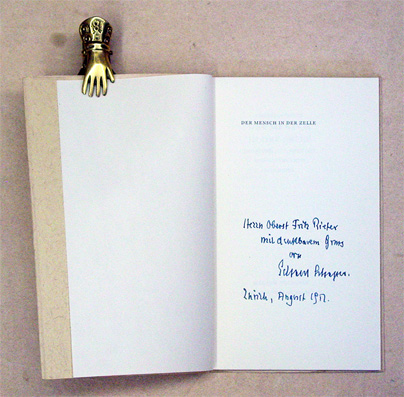 DER MENSCH IN DER ZELLE
Herrn Oberst Fritz Rieter
mit dankbarem Gruss
von
Zürich, August 1951.